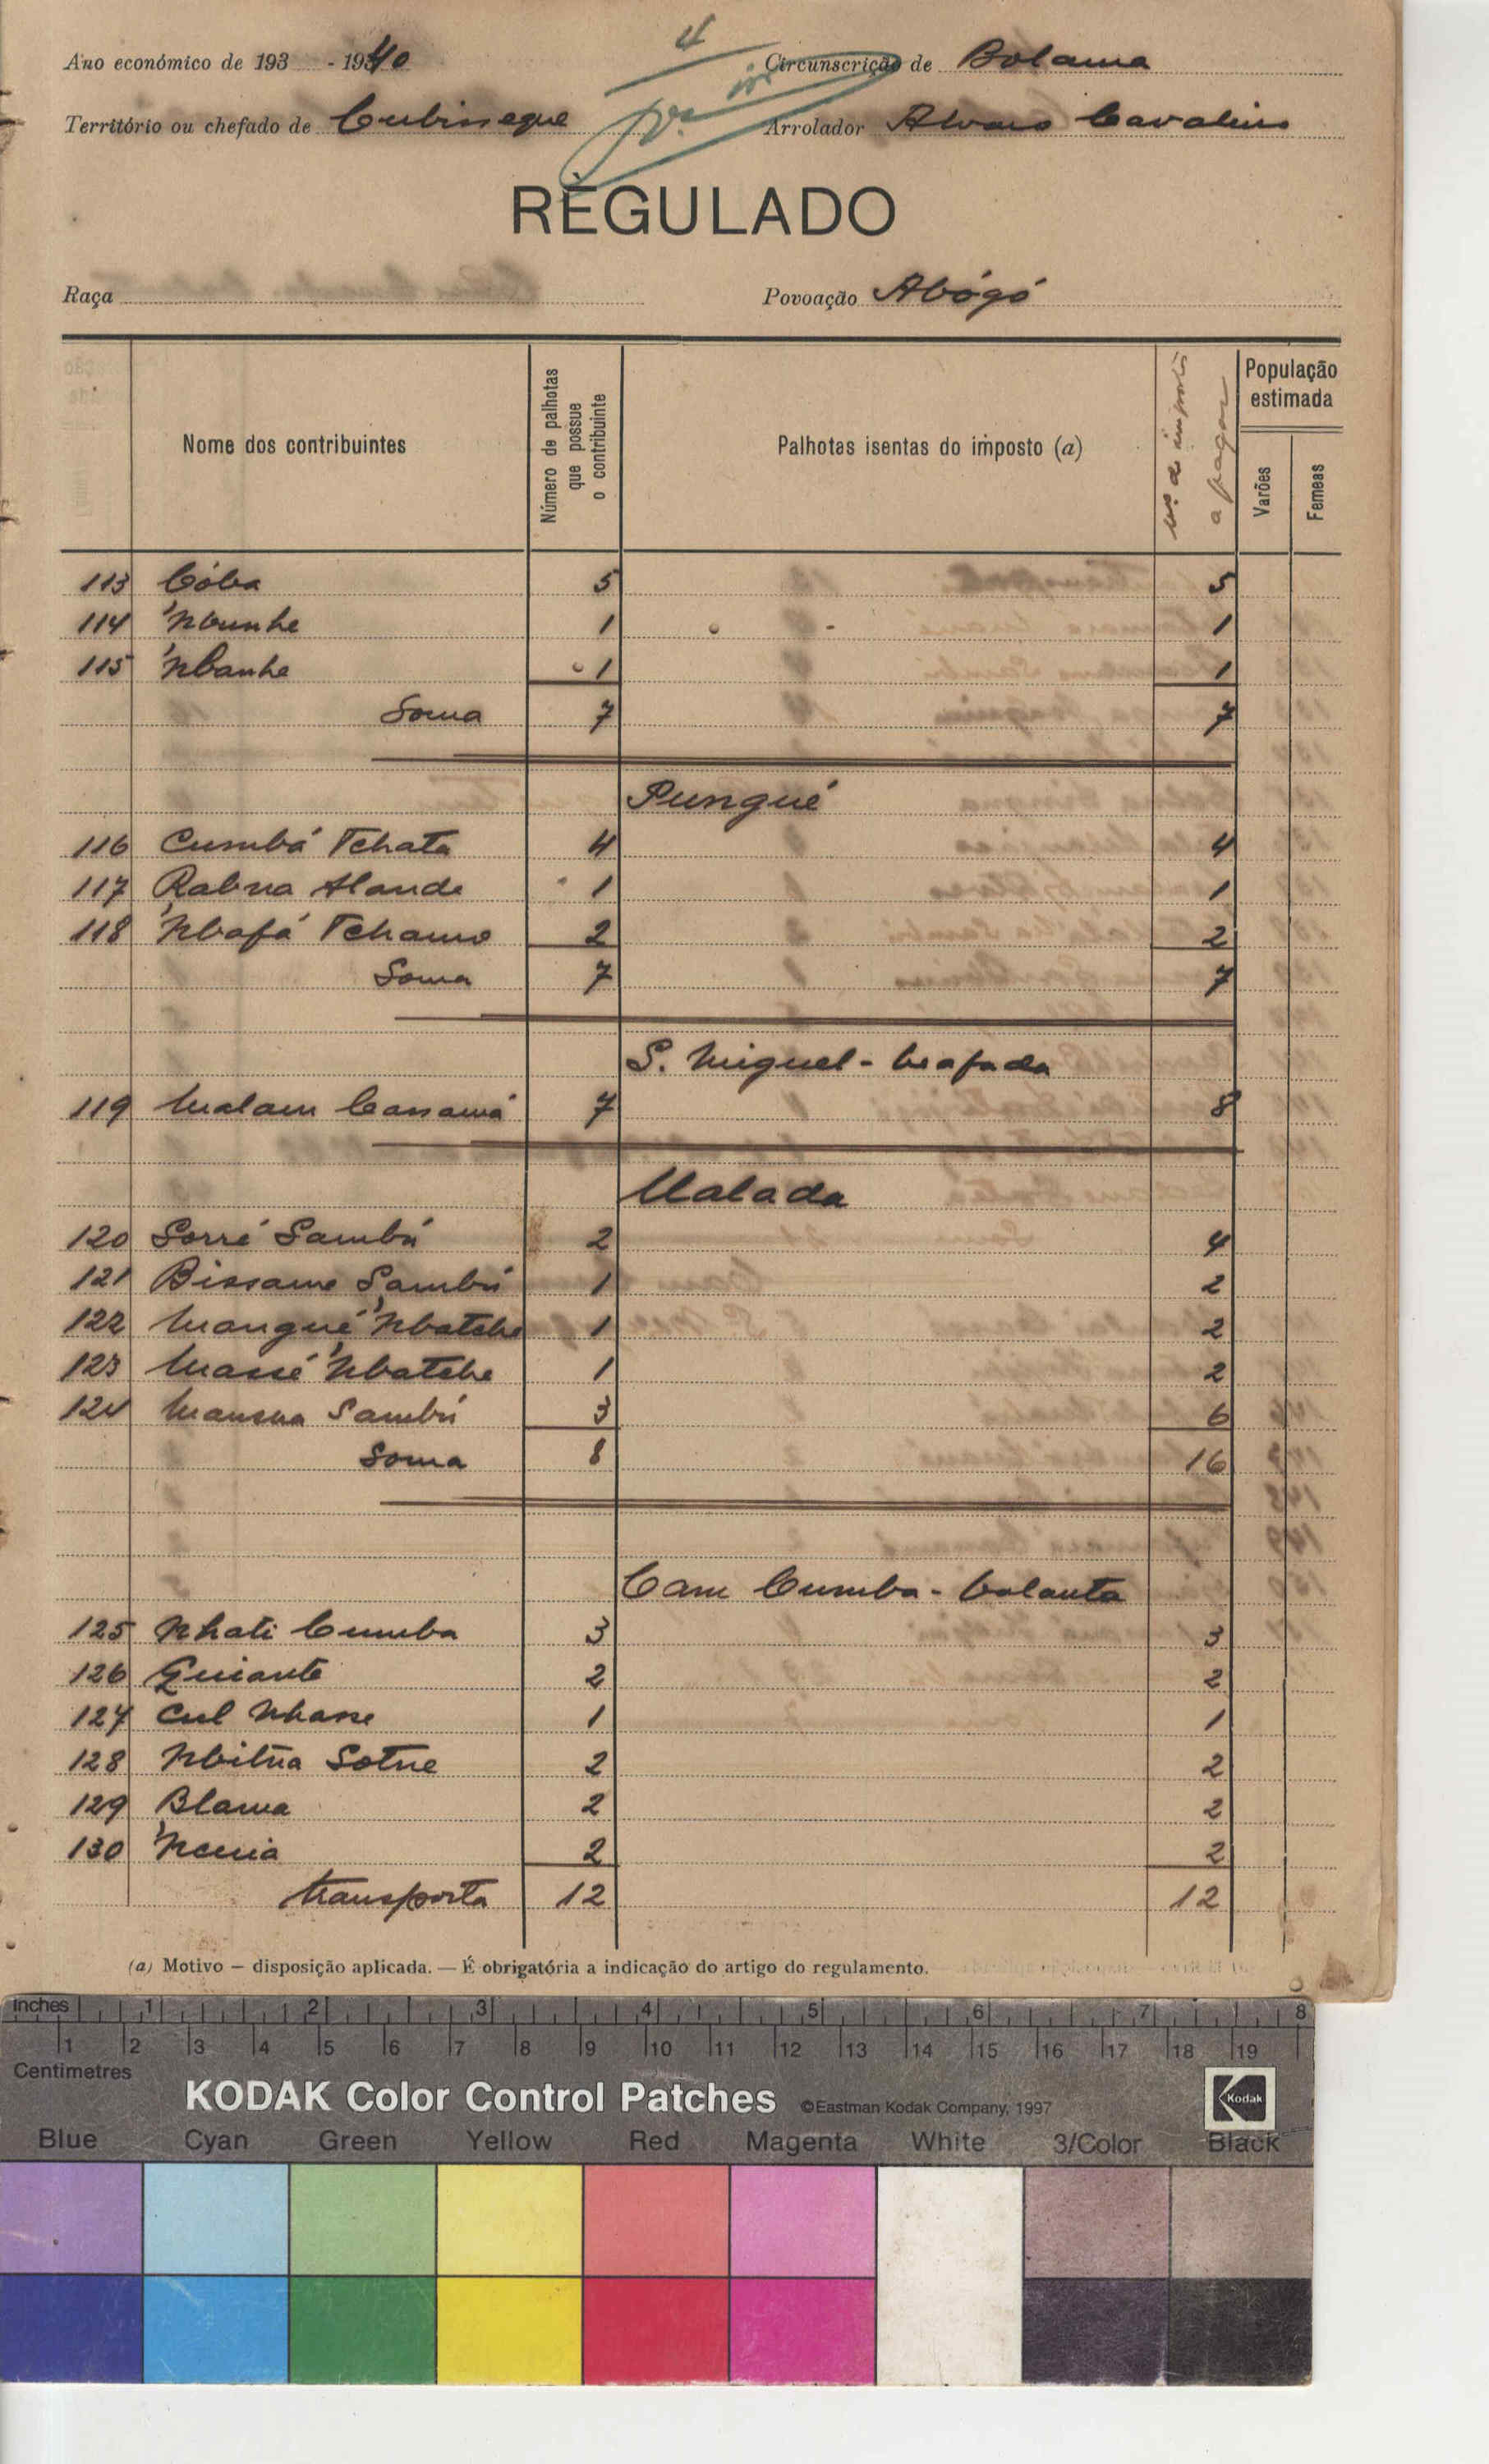 4
Ano económico de 193 - 1940 Circunscrição de Bolama
Território ou chefado de Cubisseque Arrolador Alvaro
REGULADO
Raça Povoação Abógó
Nome dos contribuintes
Número de palhotas que possue o contribuinte
Palhotas isentas do imposto (a)
nº de impostos a pagar
População estimada
Varões
Femeas
113 Cóba 5 5
114 'Nbunhe 1 1
115 'Nbanhe 1 1
Soma 7 7
Pungué
116 Cumbá Tchata 4 4
117 Rabna Alande 1 1
118 'Nbafá Tchamo 2 2
Soma 7 7
S. Miguel - beafada
119 Malam Cassamá 7 8
Malada
120 Sorré Sambú 2 4
121 Bissame Sambú 1 2
122 Mangué 'Nbatche 1 2
123 Massé 'Nbatche 1 2
124 Mansua Sambú 3 6
Soma 8 16
Cam Cumba - balanta
125 Nhati Cumba 3 3
126 Quiante 2 2
127 Cul Nhasse 1 1
128 Nbitna Sotne 2 2
129 Blama 2 2
130 2 2
transporta 12 12
(a) Motivo — disposição aplicada. — É obrigatória a indicação do artigo do regulamento.
inches 1 2 3 4 5 6 7 8
1 2 3 4 5 6 7 8 9 10 11 12 13 14 15 16 17 18 19
Centimetres
KODAK Color Control Patches ©Eastman Kodak Company, 1997 Kodak
Blue Cyan Green Yellow Red Magenta White 3/Color Black